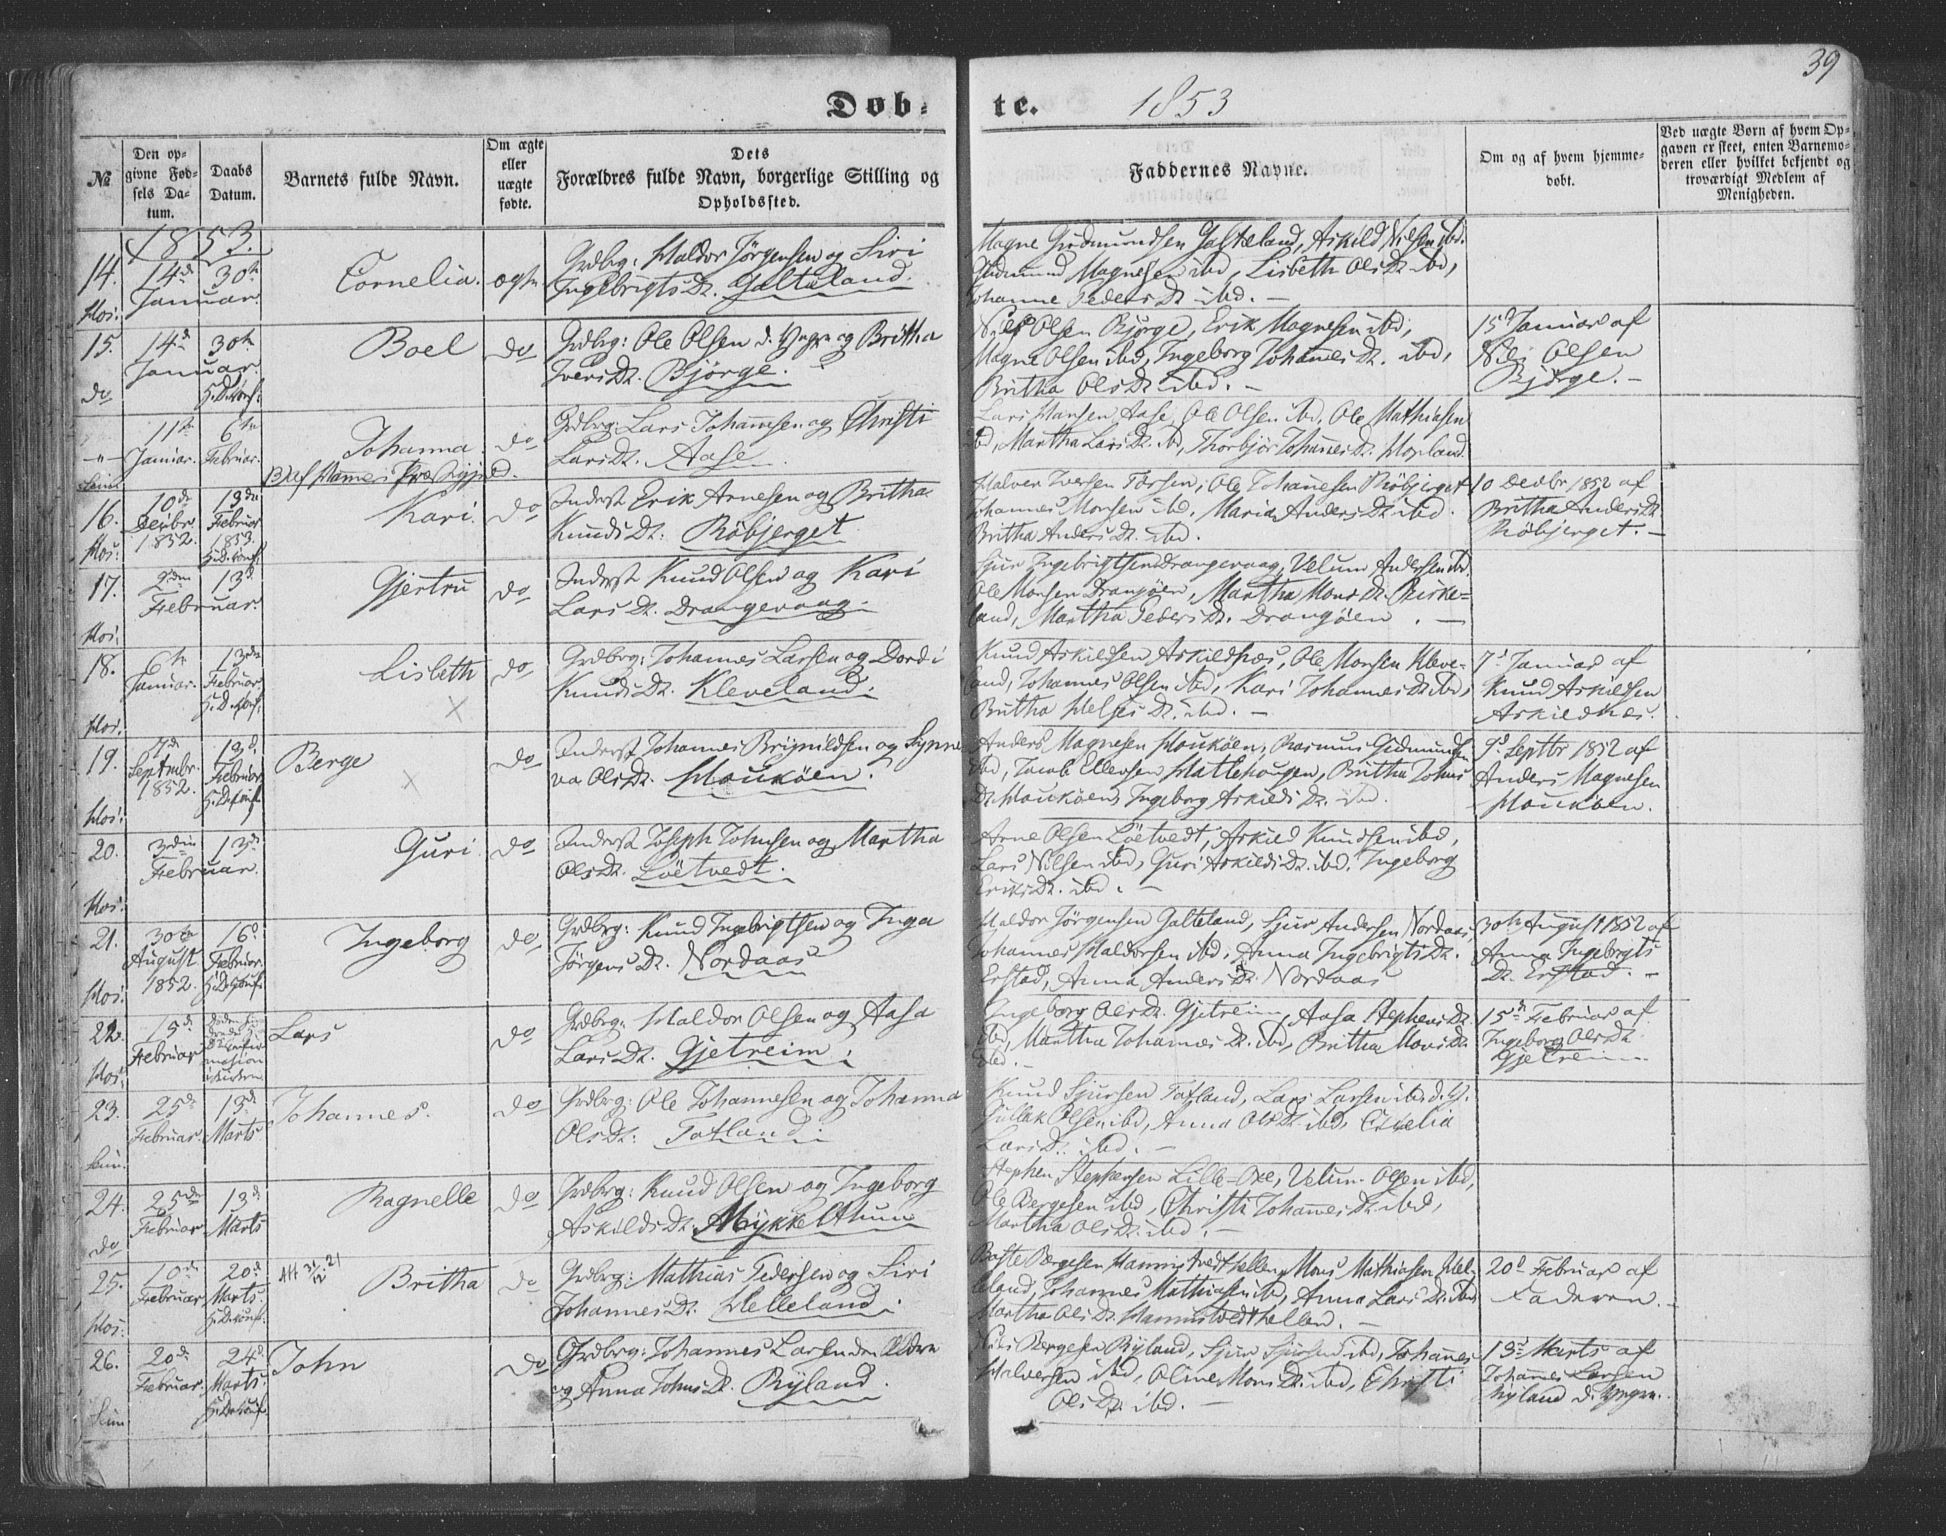 39
Døb-
te.
1853
№
Den op-
givne Fød-
sels Da-
tum.
Daabs
Datum.
Barnets fulde Navn.
Om ægte
eller
uægte
fødte.
Dets
Forældres fulde Navn, borgerlige Stilling og
Opholdssted.
Faddernes Navne.
Om og af hvem hjemme-
døbt.
Ved uægte Børn af hvem Op-
gaven er skeet, enten Barnemo-
deren eller hvilket bekjendt og
troværdigt Medlem af
Menigheden.
1853.
14. 14d 30te Januar. Cornelia. ægte
Grdbrg: Haldor Jørgensen og Siri
Ingebrigts Dr. Galteland.
Magne Gudmundsen Galteland, Askild Nilsen ibd.
Gudmund Magnesen ibd, Lisbeth Ols Dr. ibd,
Johanne Peders Dr. ibd. —
Hos:
15. 14d 30te Januar. Boel do
Grdbrg: Ole Olsen d. Yngre og Britha
Ivers Dr. Bjørge.
Nils Olsen Bjørge, Erik Magnesen ibd,
Magne Olsen ibd, Ingeborg Johannes Dr. ibd,
Britha Ols Dr. ibd. —
15d Januar af
Nils Olsen
Bjørge. —
do
11te Januar. 6te Februar. Johanna. do
Grdbrg: Lars Johannesen og Christi
Lars Dr. Aase.
Lars Hansen Aase, Ole Olsen ibd, Ole Mathiesen
ibd, Martha Lars Dr. ibd, Thorbjør Johannes Dr. Hopland.
af Hammers Præstegjeld.
16. 10de Decbr. 1852. 13de Februar 1853. Kari. do
Inderst Erik Arnesen og Britha
Knuds Dr. Røbjerget
Halvor Iversen Torsen, Ole Johannesen Røbjerget
Johannes Monsen ibd. Maria Anders Dr. ibd.
Britha Anders Dr. ibd.
10 Decbr 1852 af
Britha Anders Dr.
Røbjerget. —
Hos:
17. 2den 13d Februar. Gjertru do
Inderst Knud Olsen og Kari
Lars Dr. Drangevaag.
Sjur Ingebrigtsen Drangevaag, Velum Andersen ibd.
Ole Monsen Drangøen, Martha Mons Dr. Birke-
land, Martha Peders Dr. Drangøen. —
Hos:
18. 6te Januar. 13de Februar Lisbeth do
Grdbrg: Johannes Larsen og Dordi
Knuds Dr. Kleveland.
Knud Askildsen Askildnes, Ole Monsen Kleve-
land, Johannes Olsen ibd, Kari Johannes Dr. ibd,
Britha Helges Dr. ibd. —
7d Januar af
Knud Askildsen
Askildnes.
Hos:
19. 7de Septmbr. 1852. 13d Februar Berge do
Inderst Johannes Brynildsen og Synne
va Ols Dr. Houkøen.
Anders Magnesen Houkøen, Rasmus Gudmundsen
ibd, Jacob Ellersen Hattehougen, Britha Johns
Dr. Houkøen, Ingeborg Askilds Dr. ibd.
9d Septbr 1852 af
Anders Magnesen
Houkøen.
Hos:
20. 3die 13d Februar. Guri do
Inderst Joseph Johnsen og Martha
Ols Dr. Løtvedt.
Arne Olsen Løtvedt, Askild Knudsen ibd,
Lars Nilsen ibd, Guri Askilds Dr. ibd, Ingeborg
Eriks Dr. ibd. —
Hos:
21. 30te August 1852. 16d Februar. Ingeborg do
Grdbrg: Knud Ingebrigtsen og Inga
Jørgens Dr. Nordaas
Haldor Jørgensen Galteland, Sjur Andersen Nordaas
Johannes Haldorsen ibd, Anna Ingebrigts Dr.
Erstad, Anna Anders Dr. Nordaas
30te August 1852 af
Anna Ingebrigts
Dr. Erstad. —
Hos:
22. 15d Februar Lars do
Grdbrg: Haldor Olsen og Aasa
Lars Dr. Gjetreim.
Ingeborg Ols Dr. Gjetreim, Aasa Stephens Dr.
ibd, Martha Johannes Dr. ibd, Britha Mons Dr.
ibd. —
15d Februar af
Ingeborg Ols Dr.
Gjetreim
Hos:
23. 25d Februar. 13d Marts Johannes. do
Grdbrg: Ole Johannesen og Johanna
Ols Dr. Tofland.
Knud Sjursen Tofland, Lars Larsen ibd. d. Y.
Gullak Olsen ibd, Anna Ols Dr. ibd,
Lars Dr. ibd. —
24. 25de Februar 13d Marts Ragnelle do
Grdbrg: Knud Olsen og Ingeborg
Askilds Dr. Mykkeltun
Stephen Stephensen Lille-Oxe, Velum Olsen ibd,
Ole Bergesen ibd, Christi Johannes Dr. ibd,
Martha Ols Dr. ibd. —
do
25. 10de Februar 20d Marts. Britha do
Grdbrg: Mathias Pedersen og Siri
Johannes Dr. Helleland.
Børste Bergesen Hamnistvedthellen, Mons Mathiesen Hel-
leland, Johannes Mathiasen ibd, Anna Lars Dr. ibd
Martha Ols Dr. Hamnistvedthellen. —
20d Februar af
Faderen. —
Hos:
26. 20de Februar. 24d Marts. John do
Grdbrg: Johannes Larsen den Ældre
og Anna Johns Dr. Ryland.
Nils Bergesen Ryland, Sjur Sjursen ibd, Johannes
Halversen ibd, Oline Mons Dr. ibd, Christi
Ols Dr. ibd. —
13d Marts af
Johannes Larsen
Ryland d. Yngre.